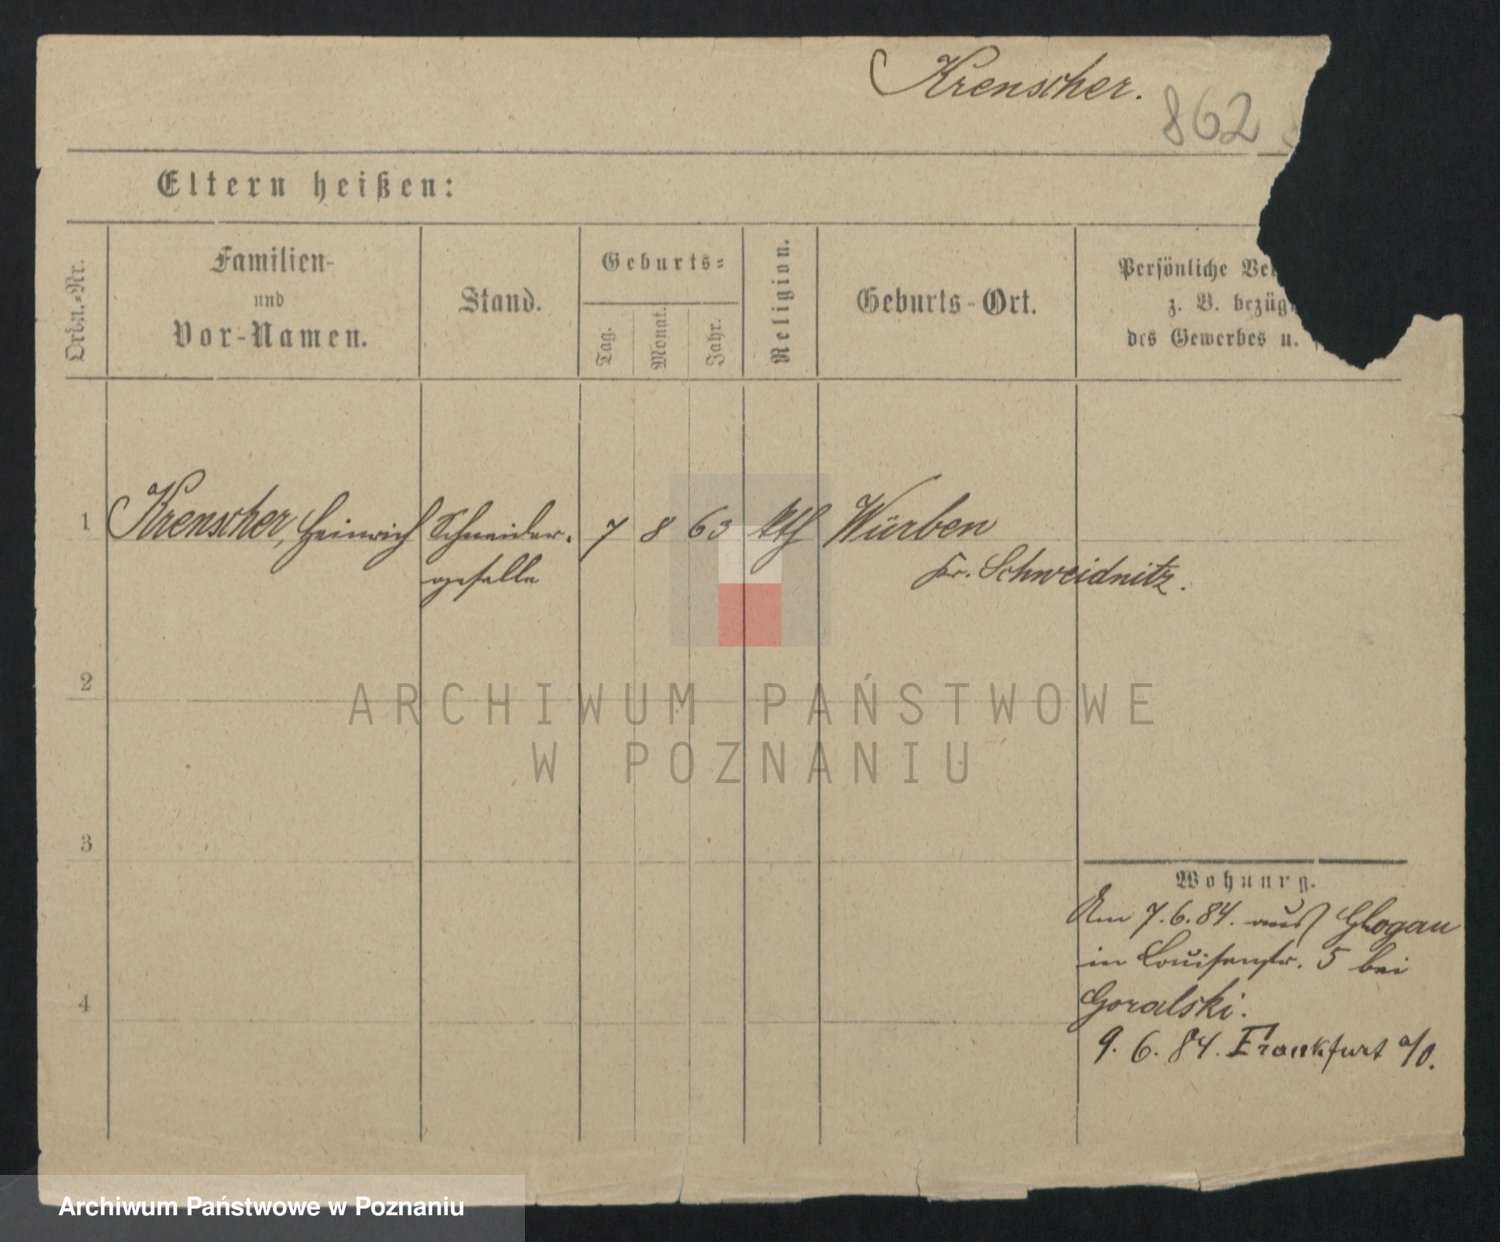 Krenscher.
862
Eltern heißen:
Ordn.=Nr.
Familien-
und
Vor-Namen.
Stand.
Geburts=
Tag.
Monat.
Jahr.
Religion.
Geburts-Ort.
Persönliche
z. B.
des Gewerbes u.
1 Krenscher, Heinrich Schneider- 7 8 63 kth Würben
geselle Kr. Schweidnitz.
2
ARCHIWUM PAŃSTWOWE
W POZNANIU
3
Wohnung.
Am 7.6.84. aus Glogau
in Louisenstr. 5 bei
4 Goralski.
9. 6. 84. Frankfurt a/O.
Archiwum Państwowe w Poznaniu